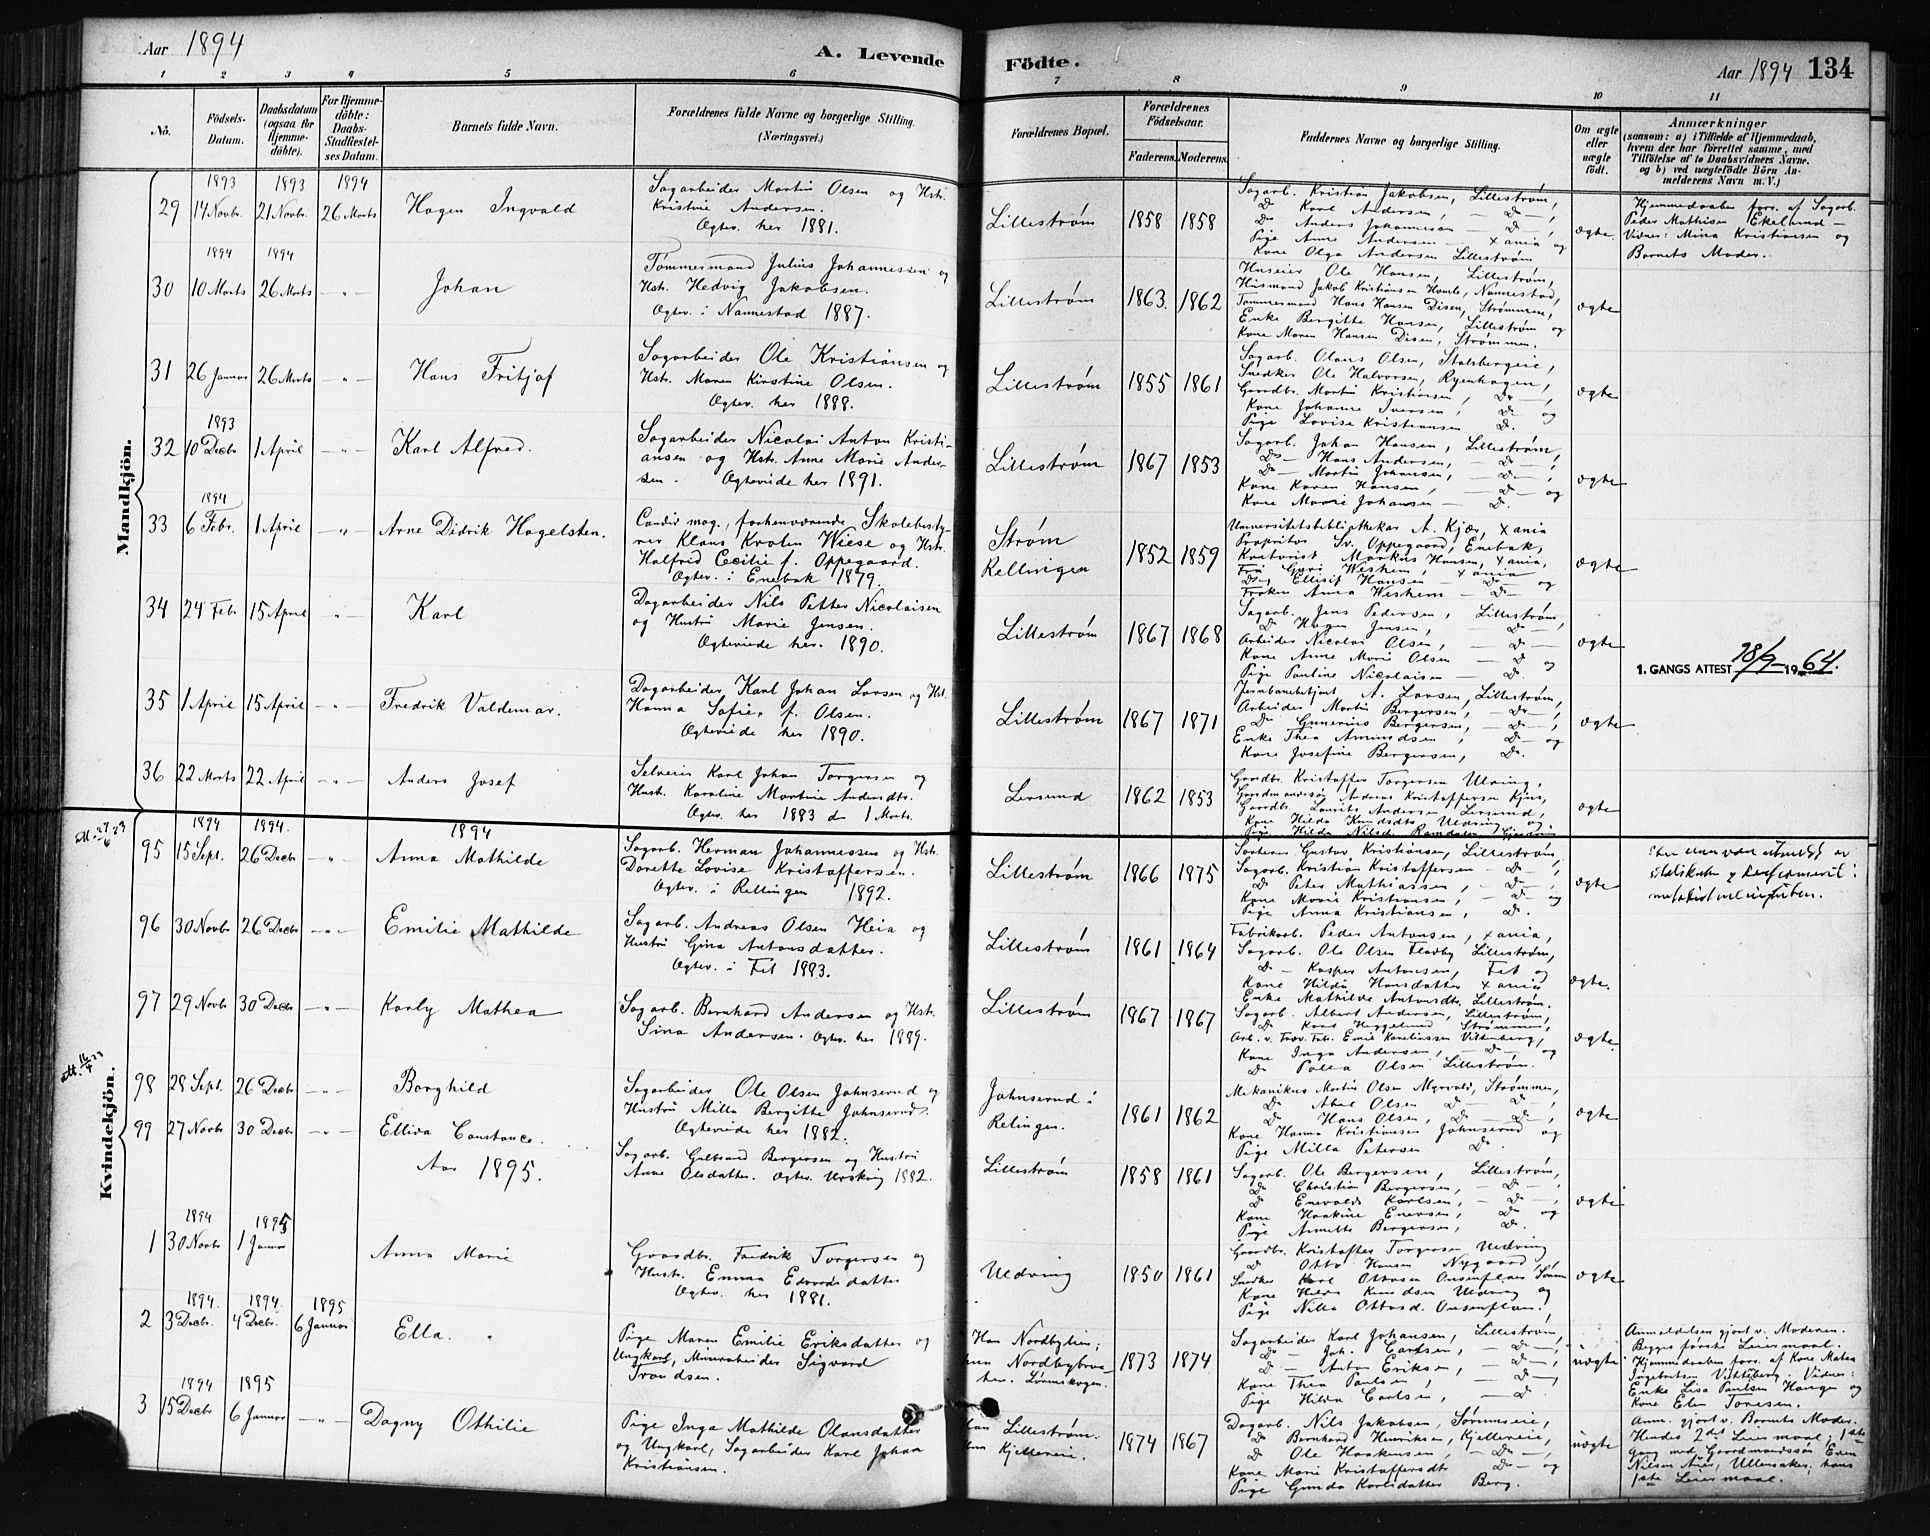 Aar 1894
A. Levende Födte.
Aar 1894 134
1 2 3 4 5 6 7 8 9 10 11
No.
Födsels-Datum.
Daabsdatum (ogsaa for Hjemme-döbte).
For Hjemme-döbte: Daabs-Stadfæstel-ses Datum.
Barnets fulde Navn.
Forældrenes fulde Navne og borgerlige Stilling. (Næringsvei.)
Forældrenes Bopæl.
Forældrenes Födselsaar.
Faderens. Moderens.
Faddernes Navne og borgerlige Stilling.
Om ægte eller uægte födt.
Anmærkninger
(saasom: a) i Tilfælde af Hjemmedaab,
hvem der har forrettet samme, med
Tilföielse af to Daabsvidners Navne.
og b) ved uægtefödte Börn An-
melderens Navn m. V.)
Mandkjön.
1893 1893 1894
29 14 Novbr. 21 Novbr. 26 Marts Hagen Ingvald
Sagarbeider Martin Olsen og Hstr.
Kristine Andersen.
Ægtev. her 1881.
Lillestrøm 1858 1858
Sagarb. Kristian Jakobsen, Lillestrøm,
Do Karl Andersen, — D —,
Do Anders Johannesen — D —,
Pige Anne Andersen — Xania og
Kone Olga Andersen Lillestrøm
ægte.
Hjemmedaaben forr. af Sagarb.
Peder Mathisen Ekelund —
Vidner: Mina Kristiansen og
Barnets Moder.
1894 1894
30 10 Marts 26 Marts — " — Johan
Tømmermand Julius Johannessen og
Hst. Hedvig Jakobsen.
Ægtev. i Nannestad 1887.
Lillestrøm 1863. 1862
Huseier Ole Hansen, Lillestrøm,
Husmand Jakob Kristiansen Homle, Nannestad,
Tømmermand Hans Hansen Disen, Strømmen,
Enke Bergitte Hansen, Lillestrøm og
Kone Maren Hansen Disen, Strømmen.
ægte
31 26 Januar 26 Marts — " — Hans Fritjof
Sagarbeider Ole Kristiansen og
Hst. Maren Kirstine Olsen.
Ægtev. her 1888.
Lillestrøm 1855 1861
Sagarb. Olaus Olsen, Stalsbergeie,
Snedker Ole Halvorsen, Ryenhagen,
Gaardbr. Martin Kristiansen, Do —,
Kone Johanne Iversen, Do og
Pige Lovise Kristiansen D.
ægte
1893
32 10 Decbr 1 April — " — Karl Alfred.
Sagarbeider Nicolai Anton Kristi-
ansen og Hst. Anne Marie Ander-
sen. Ægteviede her 1891.
Lillestrøm 1867 1853
Sagarb. Johan Hansen, Lillestrøm,
Do — Hans Andersen, — D —,
Do — Martin Johansen, — D —,
Kone Karen Hansen, — D — og
Kone Marie Johansen — D.
ægte
1894
33 6 Febr. 1 April — " — Arne Didrik Hagelsten.
Candid mag., forhenværende Skolebesty-
rer Klaus Krolin Wiese og Hst.
Halfrid Cecilie f. Oppegaard.
Ægtev. i Enebak 1879.
Strøm Rellingen 1852 1859
Universitetsbibliothekar A. Kjær, Xania
Proprietær Sv. Oppegaard, Enebak,
Kontorist Markus Hansen, Xania,
Fru Guri Weshem, Xania
Do, Ellisif Hansen — D — og
Frøken Anna Weshem — D —
ægte
34 24 Febr 15 April — " — Karl
Dagarbeider Nils Petter Nicolaisen
og Hustru Marie Jensen.
Ægteviede her. 1890.
Lillestrøm 1867 1868
Sagarb. Jens Pedersen, Lillestrøm,
Do Hagen Jensen, — D —,
Arbeider Nicolai Olsen, — D —
Kone Anne Marie Olsen — D og
Pige Pauline Nicolaisen — D.
ægte
1. GANGS ATTEST 18/9 1964.
35 1 April 15 April — " — Fredrik Valdemar.
Dagarbeider Karl Johan Larsen og Hst.
Hanna Sofie, f. Olsen.
Ægteviede her 1890.
Lillestrøm 1867 1871
Jernbanebetjent A. Larsen, Lillestrøm,
Arbeider Martin Bergersen, Do —,
Do Gunerius Bergersen, — D —,
Enke Thea Amundsen, D — og
Kone Josefine Bergersen, Do.
ægte
36 22 Marts 22 April — " — Anders Josef
Selveier Karl Johan Torgersen og
Hust. Karoline Martine Andersdtr.
Ægtev. her 1883 d 1 Marts.
Lersund 1862 1853
Gaardbr. Kristoffer Torgersen Ulvring,
Gaardmandssøn Andreas Kristoffersen Kjus,
Gaardbr. Laurits Andersen Lersund,
Kone Hilda Knudsdtr Uldring og
Pige Hilda Nilsdr
ægte
Kvindekjön.
1894 1894. 1894
95 15 Sept. 26 Decbr — " — Anna Mathilde
Sagarb. Herman Johannessen og Hstr.
Dorette Lovise Kristoffersen.
Ægtev. i Rellingen 1892.
Lillestrøm 1866 1875
Sorterer Gustav Kristiansen, Lillestrøm,
Sagarb. Kristian Kristoffersen — D —,
Do Peter Mathiassen, — D —,
Kone Marie Kristiansen, — D — og
Pige Anna Kristiansen, D.
ægte
96 30 Novbr 26 Decbr — " — Emilie Mathilde
Sagarb. Andreas Olsen Heia og
Hustru Gina Antonsdatter.
Ægtev. i Fet 1883.
Lillestrøm 1861 1864
Fabrikarb. Peder Antonsen, Xania,
Sagarb. Ole Olsen Fladby Lillestrøm,
Do — Kasper Antonsen, Fet og
Kone Hilda Hansdatter Xania
Enke Mathilde Antonsdtr. Lillestrøm.
ægte.
97 29 Novbr 30 Decbr — " — Karly Mathea
Sagarb. Bernhard Andersen og Hstr.
Sina Andersen. Ægtev. her 1889.
Lillestrøm 1867 1867
Sagarb. Albert Andersen, Lillestrøm,
Do Karl Heggelund Strømmen,
Arb. v. Træv. Fabr. Emil Karelinssen Vittenberg,
Kone Inga Andersen, — D — og
Do Palla Olsen Lillestrøm.
ægte.
98 28 Sept. 26 Decbr — " — Borghild
Sagarbeider Ole Olsen Johnserud og
Hustru Milla Bergitte Johnserud.
Ægteviede her 1882.
Johnserud i Relingen. 1861 1862
Mekanikus Martin Olsen Myrvold, Strømmen,
Do Abel Olsen D — D —,
Do Hans Olsen, D — D —,
Kone Hanna Kristiansen Johnserud og
Pige Milla Petersen D.
ægte
99 27 Novbr 30 Decbr — " — Ellida Constance.
Sagarb. Gulbrand Bergersen og Hustru
Anne Olsdatter. Ægtev. Urskoug 1882.
Lillestrøm 1858 1861
Sagarb. Ole Bergersen, Lillestrøm,
Do Christian Bergersen, — D —,
D Enevald Karlsen, — D —,
Kone Haakine Enersen, D og
Pige Annette Bergersen, D.
ægte
Aar 1895.
1894 1895
1 30 Novbr 1 Januar Anna Marie
Gaardbr. Fredrik Torgersen og
Hustr. Emma Edvardsdatter
Ægtev. her 1881.
Uldring 1850 1861
Gaardbr. Kristoffer Torgersen Uldring
D Otto Hansen Nygaard,
Snedker Karl Ottosen
Kone Hilda Knudsen Uldring og
Pige Nilla Ottosd.
ægte
1894. 1894. 1895
2 3 Decbr. 4 Decbr. 6 Januar Ella.
Pige Maren Emilie Eriksdatter og
Ungkarl, Minerabeider Sigvard
Trondsen.
Han Nordbyhien;
hun Nordbybraa-
ten. Lørenskogen.
1873 1874
Sagarbeider Karl Johansen, Lillestrøm,
Do — Joh. Carlsen, — D —,
D — Anton Eriksen, — D —,
Kone Thea Paulsen, — D —,
Pige Hilda Carlsen, — D
uægte
Anmeldelsen gjort v. Moderen.
Begges første Leiermaal.
Hjemmedaaben forr. af Kone Mathea
Ingebretsen Vittenberg. Vidner:
Enke Lisa Paulsen Haugen og
Kone Elen Toresen.
1894 1895
3 15 Decbr 6 Januar — " — Dagny Othilie
Pige Inga Mathilde Olausdatter
og Ungkarl, Sagarbeider Karl Johan
Kristiansen.
Han Lillestrøm.
Hun Kjellereie.
1874 1867
Dagarb. Nils Jakobsen, Sørumseie,
Do Bernhard Henriksen, Kjellereie,
D Ole Haakensen, — Do —
Kone Marie Kristoffersdtr Do — og
Pige Gunda Karlsdatter Berg.
uægte
Anm. gjort v. Barnets Moder.
Hendes 2det Leiermaal; 1ste
Gang med Gaardmandssøn Even
Nilsen Aur, Ullensaker; hans
1ste Leiermaal.